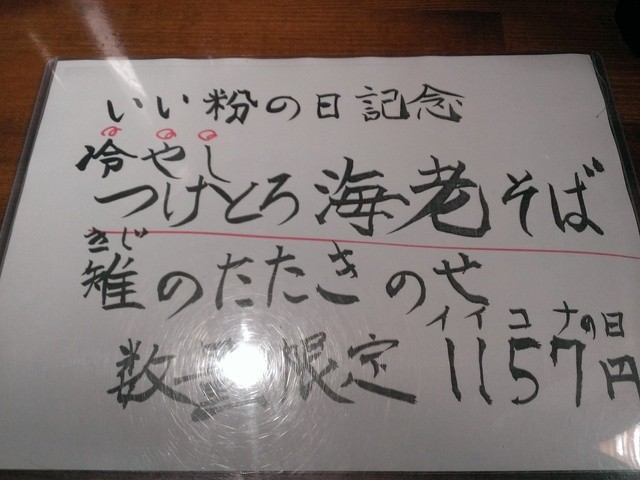 いい粉の日記念
冷やし
つけとろ海老そば
きじ
雉のたたきのせ
イイコナの日
数量限定 1157円